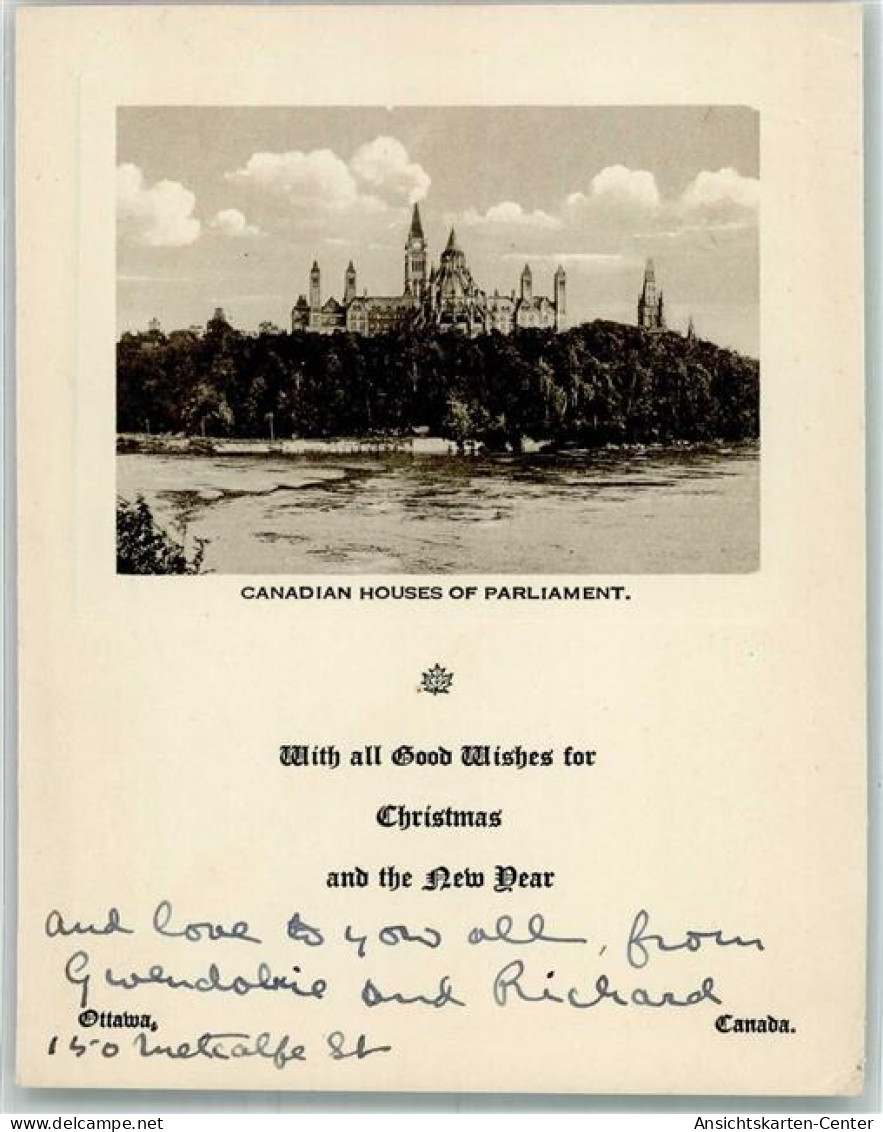 CANADIAN HOUSES OF PARLIAMENT.
With all Good Wishes for
Christmas
and the New Year
and love to you all, from
Gwendoline and Richard
Ottawa, Canada.
150 Metcalfe St
delcampe.net
Ansichtskarten-Center